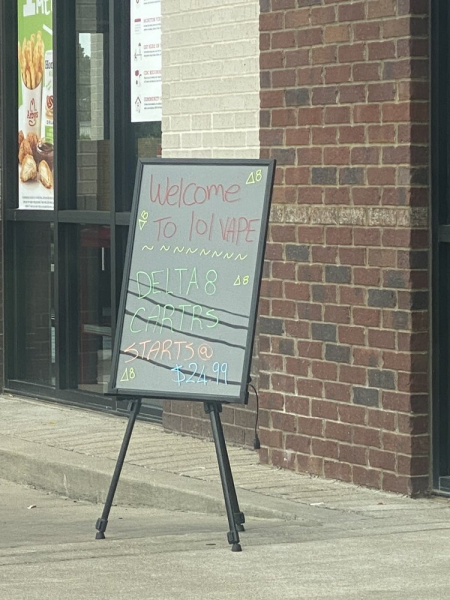 Welcome
TO 101 VAPE
~ ~ ~ ~ ~ ~ ~ ~ ~
DELTA 8
CARTRS
STARTS@
$24.99
Δ8
Δ8
Δ8
Δ8
Arbys